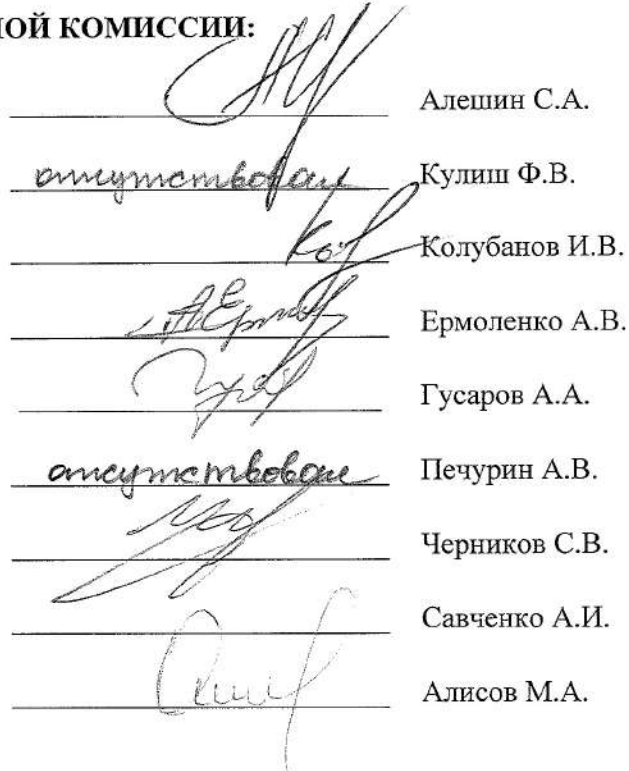 НОЙ КОМИССИИ:
Алешин С.А.
отсутствовал Кулиш Ф.В.
Колубанов И.В.
Ермоленко А.В.
Гусаров А.А.
отсутствовал Печурин А.В.
Черников С.В.
Савченко А.И.
Алисов М.А.